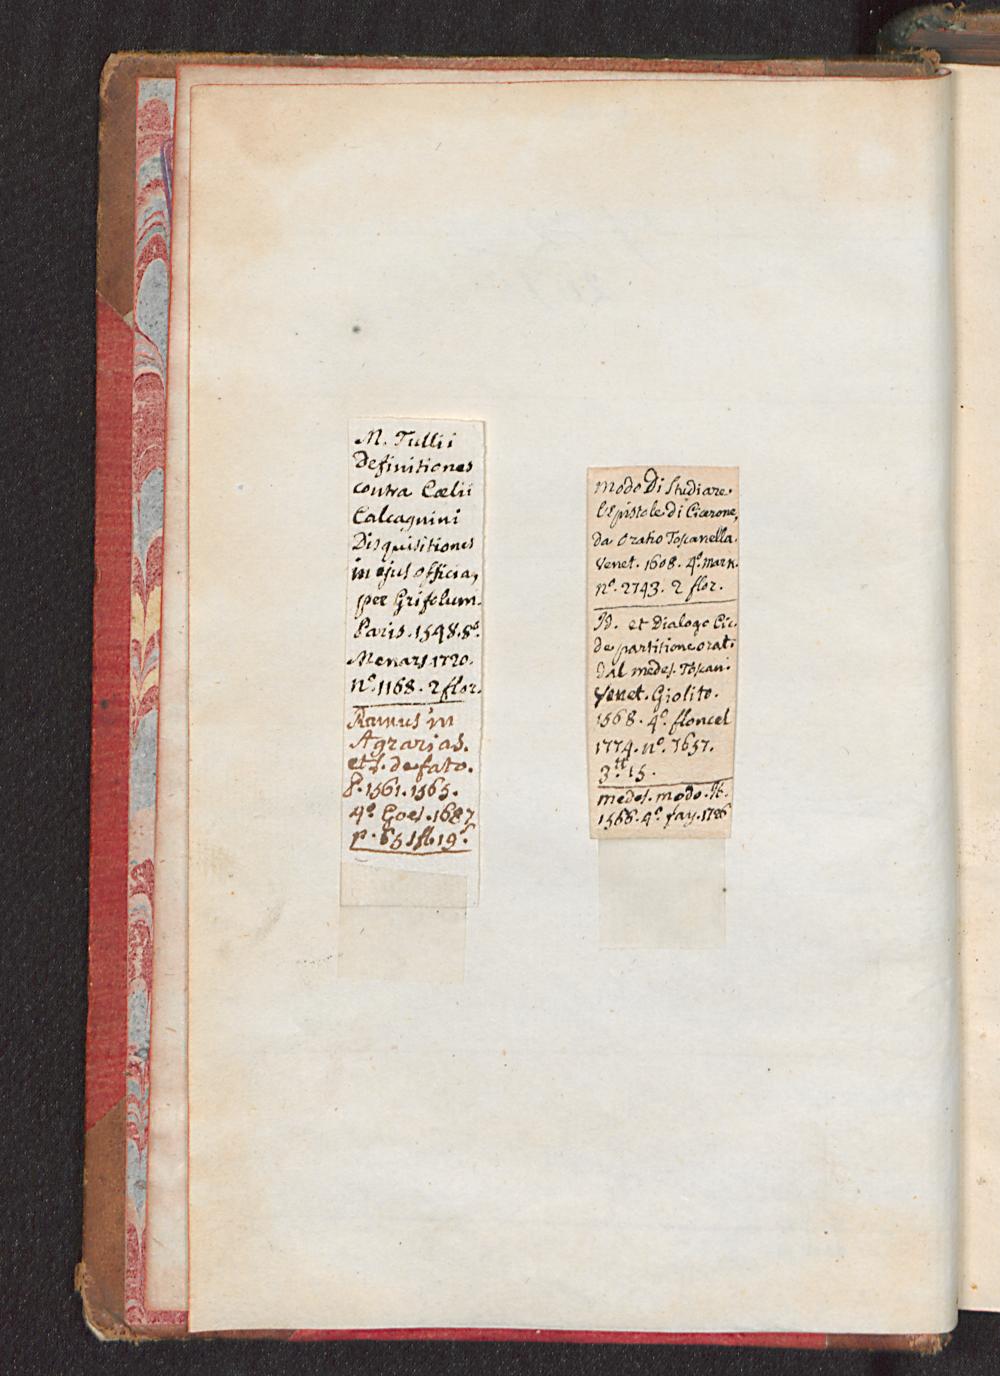 M. Tullii
Definitiones
contra Cœlii
Calcagnini
Disquisitiones
in ejus officia,
per Grifolum.
Paris. 1548. 8º.
Menars 1720.
nº. 1168. 2 flor.
Ramus in
Agrarias.
et l. de fato.
P. 1561. 1565.
4º. Goes. 1687
p. 65 1 fl. 19 s.
modo Di Studiare
l'Epistole di Cicerone,
da Oratio Toscanella.
Venet. 1608. 4º. mark.
nº. 2743. 2 flor.
Id. et Dialogo Cic.
de partitione orat.
dal medes. Toscan.
Venet. Giolito.
1568. 4º. floncel
1774. nº. 7657.
3.tt 15.
medes. modo. It.
1568. 4º. fay. 1786